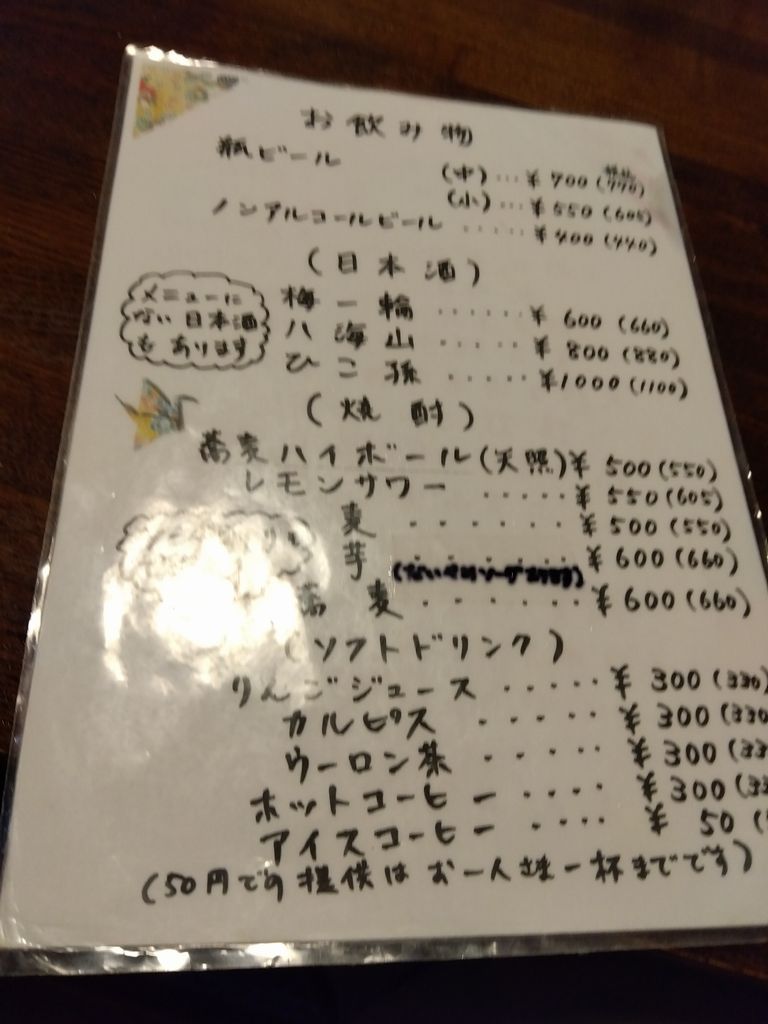 お飲み物
瓶ビール
(中)…¥700(770)
(小)…¥550(605)
ノンアルコールビール ‥‥‥ ¥400(440)
(日本酒)
メニューに
ない日本酒
もあります
梅一輪 ‥‥‥ ¥600(660)
八海山 ‥‥‥ ¥800(880)
ひこ孫 ‥‥‥ ¥1000(1100)
(焼酎)
蕎麦ハイボール(天照)¥500(550)
レモンサワー ‥‥‥ ¥550(605)
麦 ‥‥‥ ¥500(550)
芋 ‥‥‥ ¥600(660)
蕎麦 ‥‥‥ ¥600(660)
(ソフトドリンク)
りんごジュース ‥‥‥ ¥300(330)
カルピス ‥‥‥ ¥300(330
ウーロン茶 ‥‥‥ ¥300(33
ホットコーヒー ‥‥ ¥300(33
アイスコーヒー ‥‥ ¥50(
(50円での提供はお一人さま一杯までです)